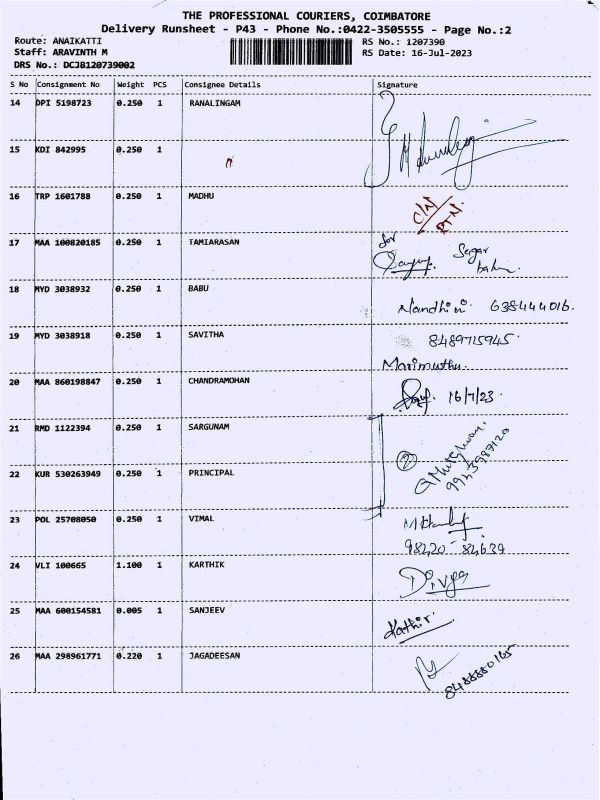 THE PROFESSIONAL COURIERS, COIMBATORE
Delivery Runsheet - P43 - Phone No.:0422-3505555 - Page No.:2
Route: ANAIKATTI RS No.: 1207390
Staff: ARAVINTH M RS Date: 16-Jul-2023
DRS No.: DCJB120739002
S No Consignment No Weight PCS Consignee Details Signature
14 DPI 5198723 0.250 1 RANALINGAM
15 KDI 842995 0.250 1
16 TRP 1601788 0.250 1 MADHU C/N RTN.
17 MAA 100820185 0.250 1 TAMIARASAN for Sagar
18 MYD 3038932 0.250 1 BABU Nandhini. 638444016.
19 MYD 3038918 0.250 1 SAVITHA 8489715945.
Marimuthu.
20 MAA 860198847 0.250 1 CHANDRAMOHAN 16/7/23.
21 RMD 1122394 0.250 1 SARGUNAM
22 KUR 530263949 0.250 1 PRINCIPAL 2 9943987120
23 POL 25708050 0.250 1 VIMAL
98420-84639
24 VLI 100665 1.100 1 KARTHIK Divya
25 MAA 600154581 0.005 1 SANJEEV Kathir.
26 MAA 298961771 0.220 1 JAGADEESAN 8488880165